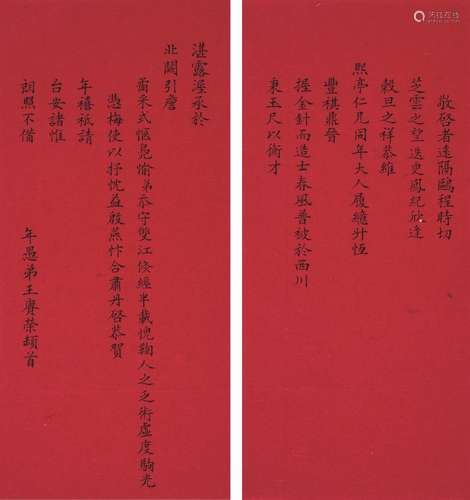 敬啓者遠隔鷗程時切
芝雲之望迭更鳳紀欣逢
穀旦之祥恭維
熙亭仁兄同年大人履纏升恒
豐祺鼎晉
握金針而造士春風普被於西川
秉玉尺以衡才
湛露渥承於
北闕引詹
喬采式愜鳧愉弟忝守雙江倏經半載愧鞠人之乏術虛度駒光
憑梅使以抒忱益殷燕忭合肅丹啓恭賀
年禧祗請
台安諸惟
朗照不備
年愚弟王賡榮頓首